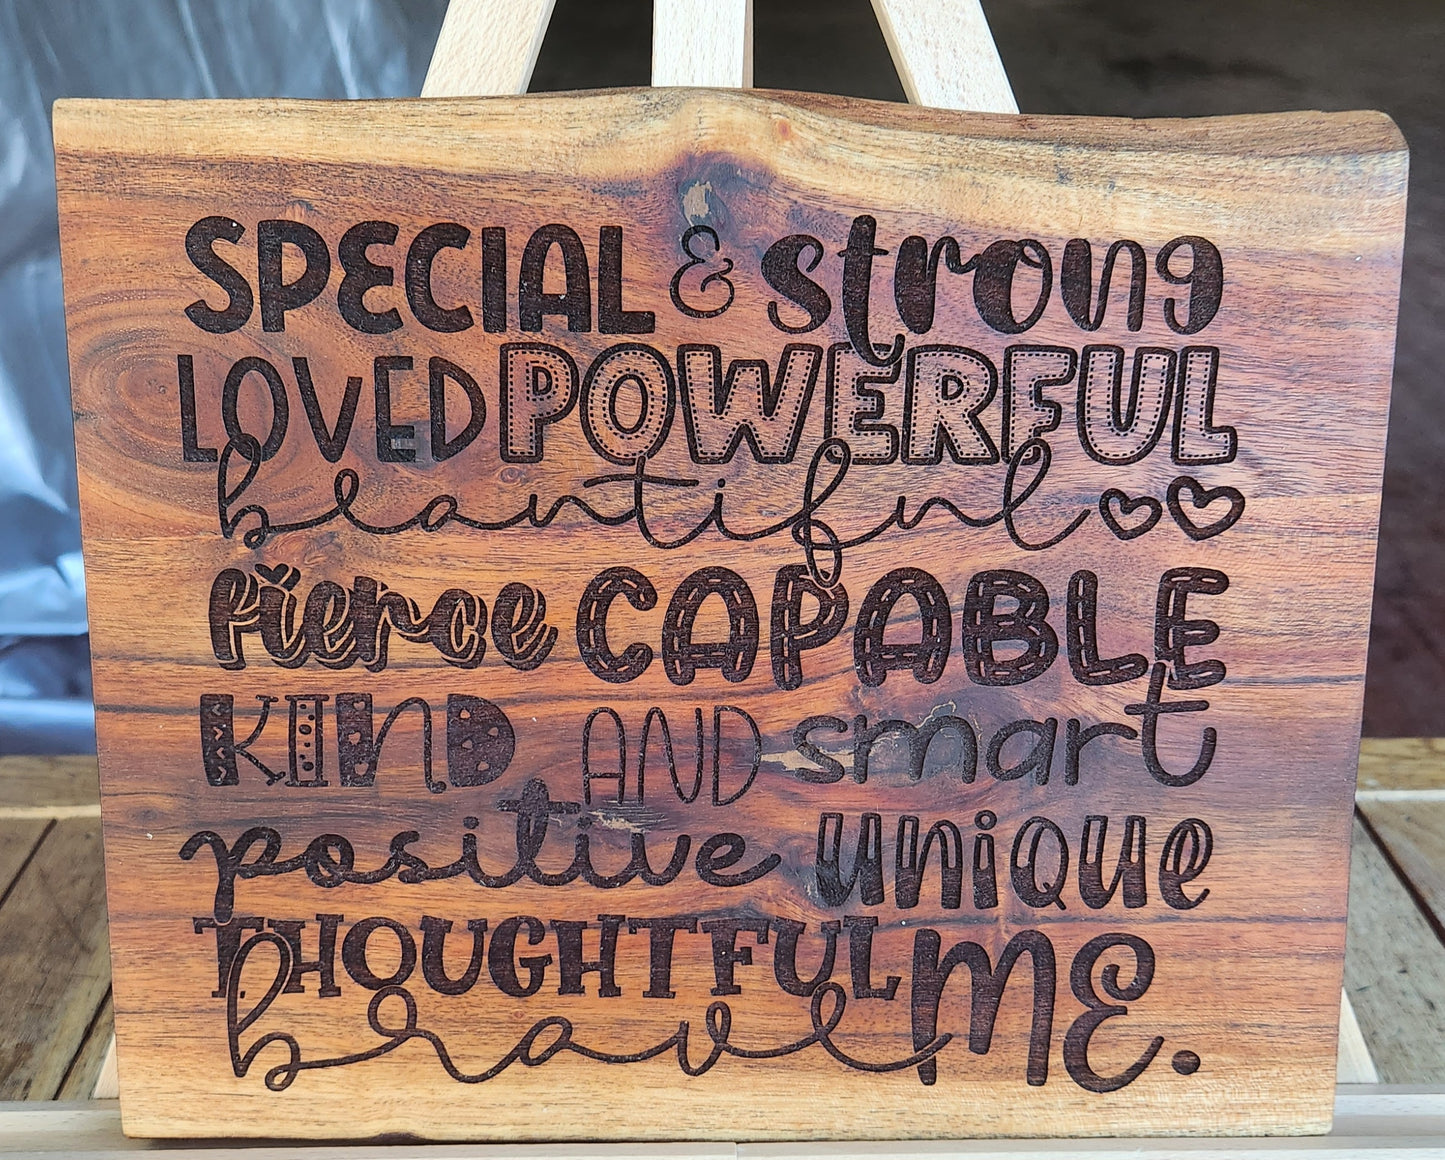 SPECIAL & strong
LOVED POWERFUL
beautiful
fierce CAPABLE
KIND AND smart
positive unique
THOUGHTFUL
brave ME.